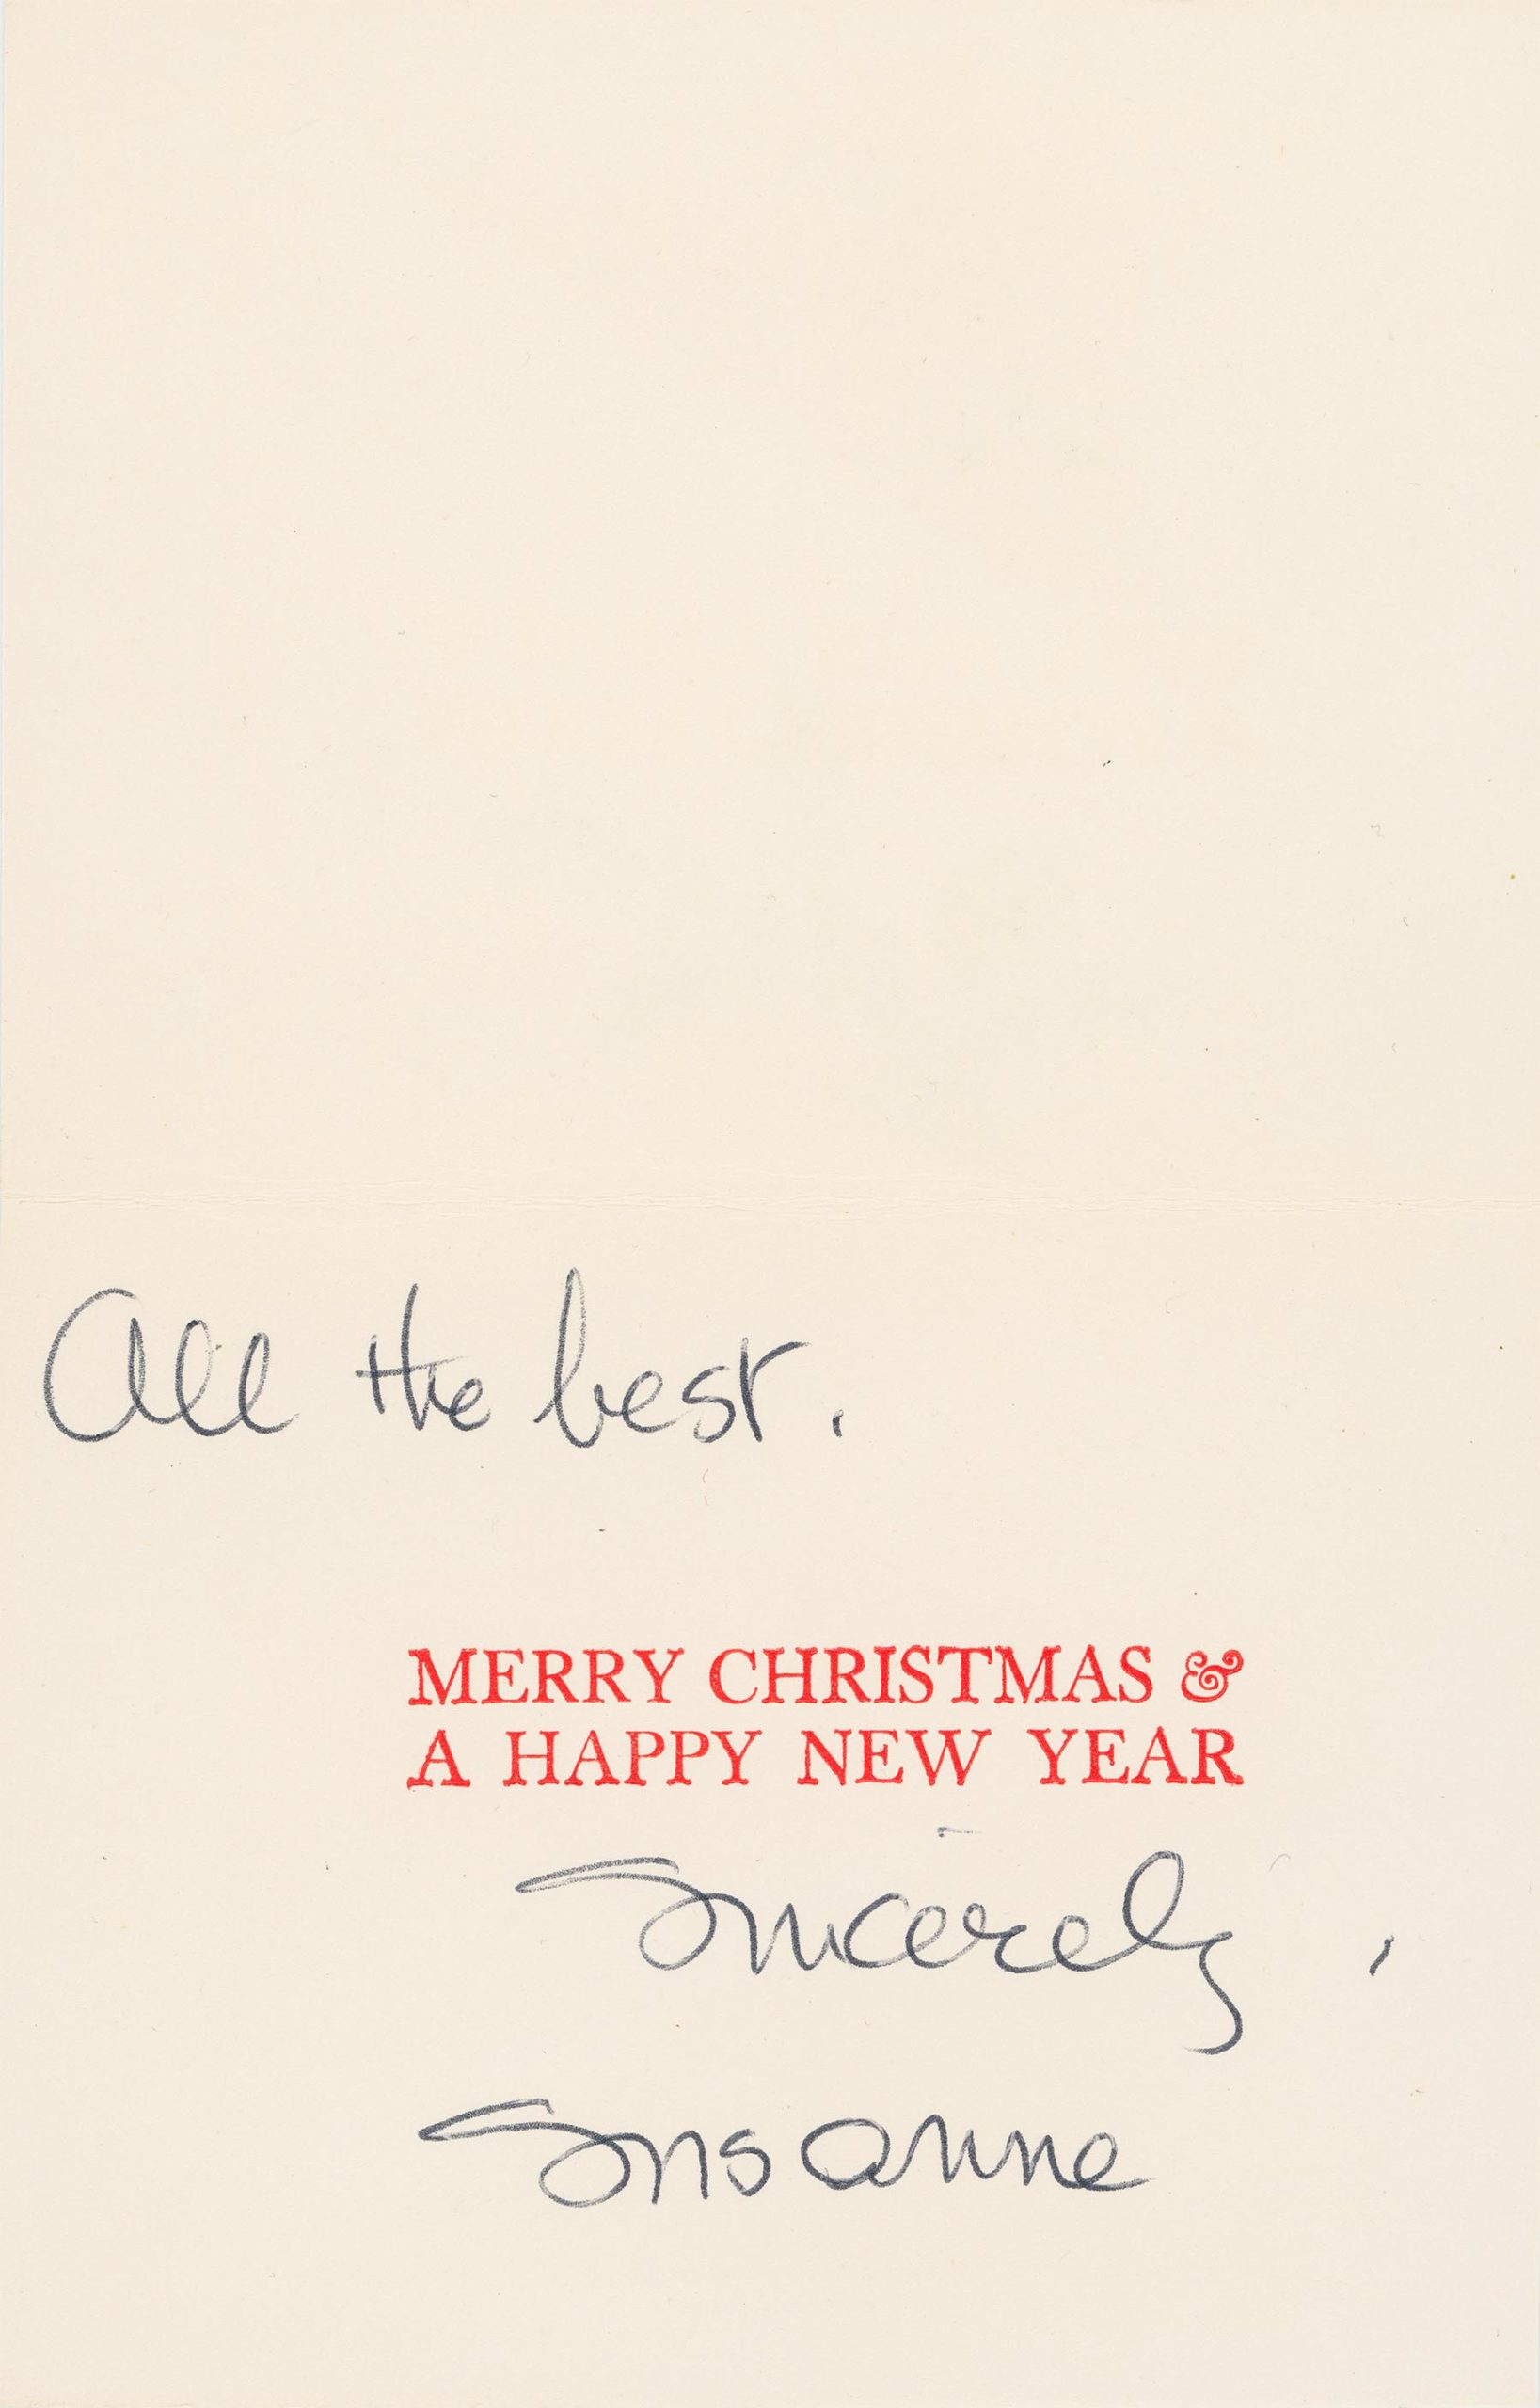 All the best.
MERRY CHRISTMAS &
A HAPPY NEW YEAR
Sincerely,
Susanne